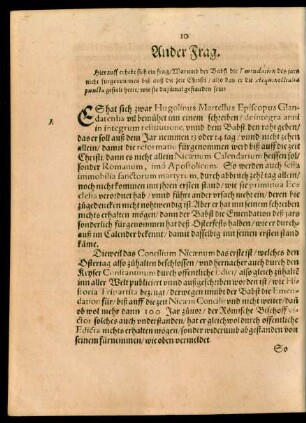 10
Ander Frag.
Hierauff erhebt sich ein frag/ Warumb der Babst die Emendation des jars
nicht fürgenommen biß auff die zeit Christi / also das er die Aequinoctialia
puncta gestelt hette/ wie sie dazumal gestanden sein:
ES hat sich zwar Hugolinus Martellus Episcopus Glan-
datensis vil bemühet inn einem schreiben / de integra anni
in integrum restitutione, vnnd dem Babst den roht geben/
das er solt auß dem Jar nemmen 13 oder 14 tag / vnnd nicht zehen
allein / damit die reformatio fürgenommen werd biß auff die zeit
Christi: dann es nicht allein Nicænum Calendarium heissen sol/
sonder Romanum, imò Apostolicum. So werden auch festa
immobilia sanctorum martyrum, durch abbruch zehen tag allein/
noch nicht an jhren ersten stand kommen/ wie sie primitiua Ec-
clesia verordnet hab
nichts erhalten mögen/ dann der Babst die Emendation deß jars
sonderlich fürgenommen hat deß Osterfests halben / wie er durch-
auß im Calender bekennt / damit dasselbig inn seinen ersten stand
käme.
Dieweil das Concilium Nicænum das erste ist/ welches den
Ostertag also zühalten beschlossen / vnd hernacher auch durch den
Keyser Constantinum durch offentliche Edict/ also gleich zühalten
inn aller Welt publiciert vnnd außgeschriben worden ist / wie Hi-
storia Tripartita bezeugt/ derwegen nimbt der Babst die Emen-
dation für/ biß auff die zeit Nicæni Concilij vnd nicht weiter/ dañ
ob wol mehr dann 100 Jar zuuor/ der Römische Bischoff vi-
ctor solches auch vnderstanden/ hat er gleichwol durch offentliche
Edicta nichts erhalten mögen/ sonder widerumb abgestanden von
seinem fürnemmen/ wie oben vermeldet.
So